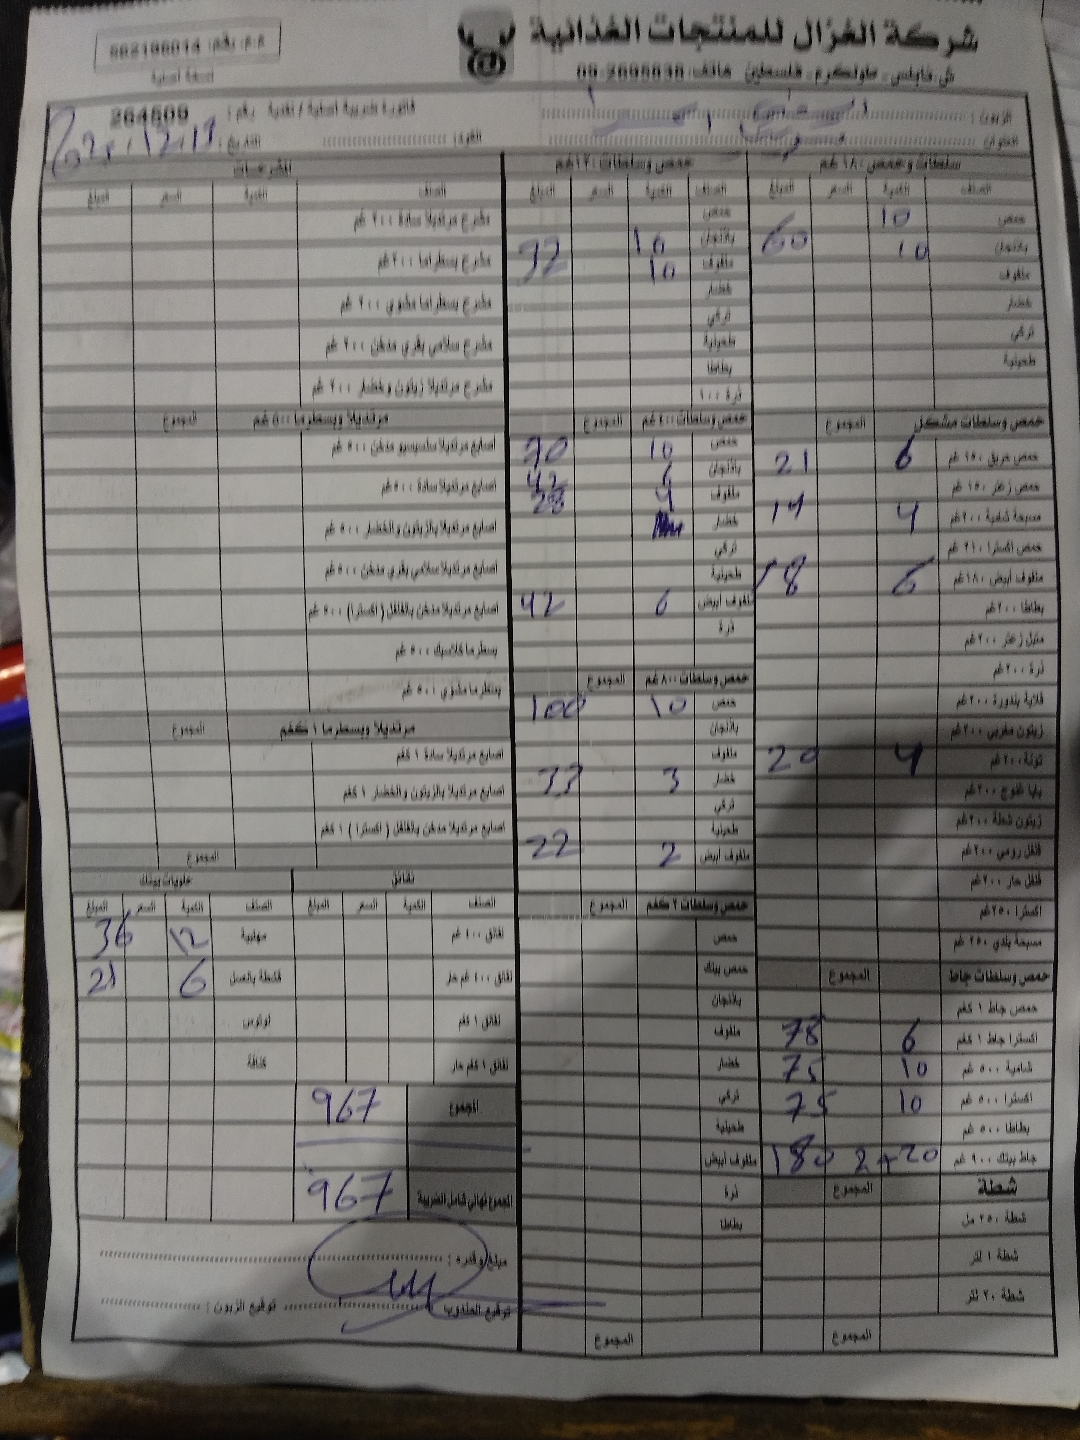 شركة الغزال للمنتجات الغذائية
م.م. رقم: 562196014
نسخة أصلية
ش. نابلس - طولكرم - فلسطين هاتف: 09-2695938
الزبون:
فاتورة ضريبية أصلية / نقدية رقم: 264509
العنوان:
الفرع:
التاريخ: 2025.12.17
سلطات وحمص ١٨٠ غم
الصنف الكمية السعر المبلغ
حمص 10
باذنجان 10 60
ملفوف
خضار
تركي
طحينية
حمص وسلطات مشكل المجموع
حمص حريق ١٥٠ غم 6 21
حمص زعتر ١٥٠ غم
مسبحة شامية ٢٠٠ غم 4 14
حمص اكسترا ٢١٠ غم
ملفوف أبيض ١٨٠ غم 6 18
بطاطا ٢٠٠ غم
متبل زعتر ٢٠٠ غم
ذرة ٢٠٠ غم
قلاية بندورة ٢٠٠ غم
زيتون مغربي ٢٠٠ غم
تونة ٢٠٠ غم 4 20
بابا غنوج ٢٠٠ غم
زيتون شطة ٢٠٠ غم
فلفل رومي ٢٠٠ غم
فلفل حار ٢٠٠ غم
اكسترا ٢٥٠ غم
مسبحة بلدي ٢٥٠ غم
حمص وسلطات جاط المجموع
حمص جاط ١ كغم
اكسترا جاط ١ كغم 6 78
شامية ٥٠٠ غم 10 75
اكسترا ٥٠٠ غم 10 75
بطاطا ٥٠٠ غم
جاط بينك ٩٠٠ غم 20+2 180
شطة المجموع
شطة ٢٥٠ مل
شطة ١ لتر
شطة ٢٠ لتر
المجموع
حمص وسلطات ١٢٠ غم
الصنف الكمية السعر المبلغ
حمص
باذنجان 16
ملفوف 10 32
خضار
تركي
طحينية
بطاطا
ذرة ١٠٠
حمص وسلطات ٤٠٠ غم المجموع
حمص 10 70
باذنجان 6 42
ملفوف 4 28
خضار
تركي
طحينية
ملفوف أبيض 6 42
ذرة
حمص وسلطات ٨٠٠ غم المجموع
حمص 10 100
باذنجان
ملفوف
خضار 3 33
تركي
طحينية
ملفوف أبيض 2 22
حمص وسلطات ٢ كغم المجموع
حمص
حمص بينك
باذنجان
ملفوف
خضار
تركي
طحينية
ملفوف أبيض
ذرة
بطاطا
المجموع
الشرحات
الصنف الكمية السعر المبلغ
مشرح مرتديلا سادة ٢٠٠ غم
مشرح بسطرما ٢٠٠ غم
مشرح بسطرما مشوي ٢٠٠ غم
مشرح سلامي بقري مدخن ٢٠٠ غم
مشرح مرتديلا زيتون وخضار ٢٠٠ غم
مرتديلا وبسطرما ٥٠٠ غم المجموع
اصابع مرتديلا سلسيسيو مدخن ٥٠٠ غم
اصابع مرتديلا سادة ٥٠٠ غم
اصابع مرتديلا بالزيتون والخضار ٥٠٠ غم
اصابع مرتديلا سلامي بقري مدخن ٥٠٠ غم
اصابع مرتديلا مدخن بالفلفل (اكسترا) ٥٠٠ غم
بسطرما كلاسيك ٥٠٠ غم
بسطرما مشوي ٥٠٠ غم
مرتديلا وبسطرما ١ كغم المجموع
اصابع مرتديلا سادة ١ كغم
اصابع مرتديلا بالزيتون والخضار ١ كغم
اصابع مرتديلا مدخن بالفلفل (اكسترا) ١ كغم
المجموع
نقانق
الصنف الكمية السعر المبلغ
نقانق ٤٠٠ غم
نقانق ٤٠٠ غم حار
نقانق ١ كغم
نقانق ١ كغم حار
حلويات بينك
الصنف الكمية السعر المبلغ
مهلبية 12 36
قشطة بالعسل 6 21
لوتوس
كنافة
المجموع 967
المجموع نهائي شامل الضريبة 967
مبلغ وقدره:
توقيع المندوب توقيع الزبون: